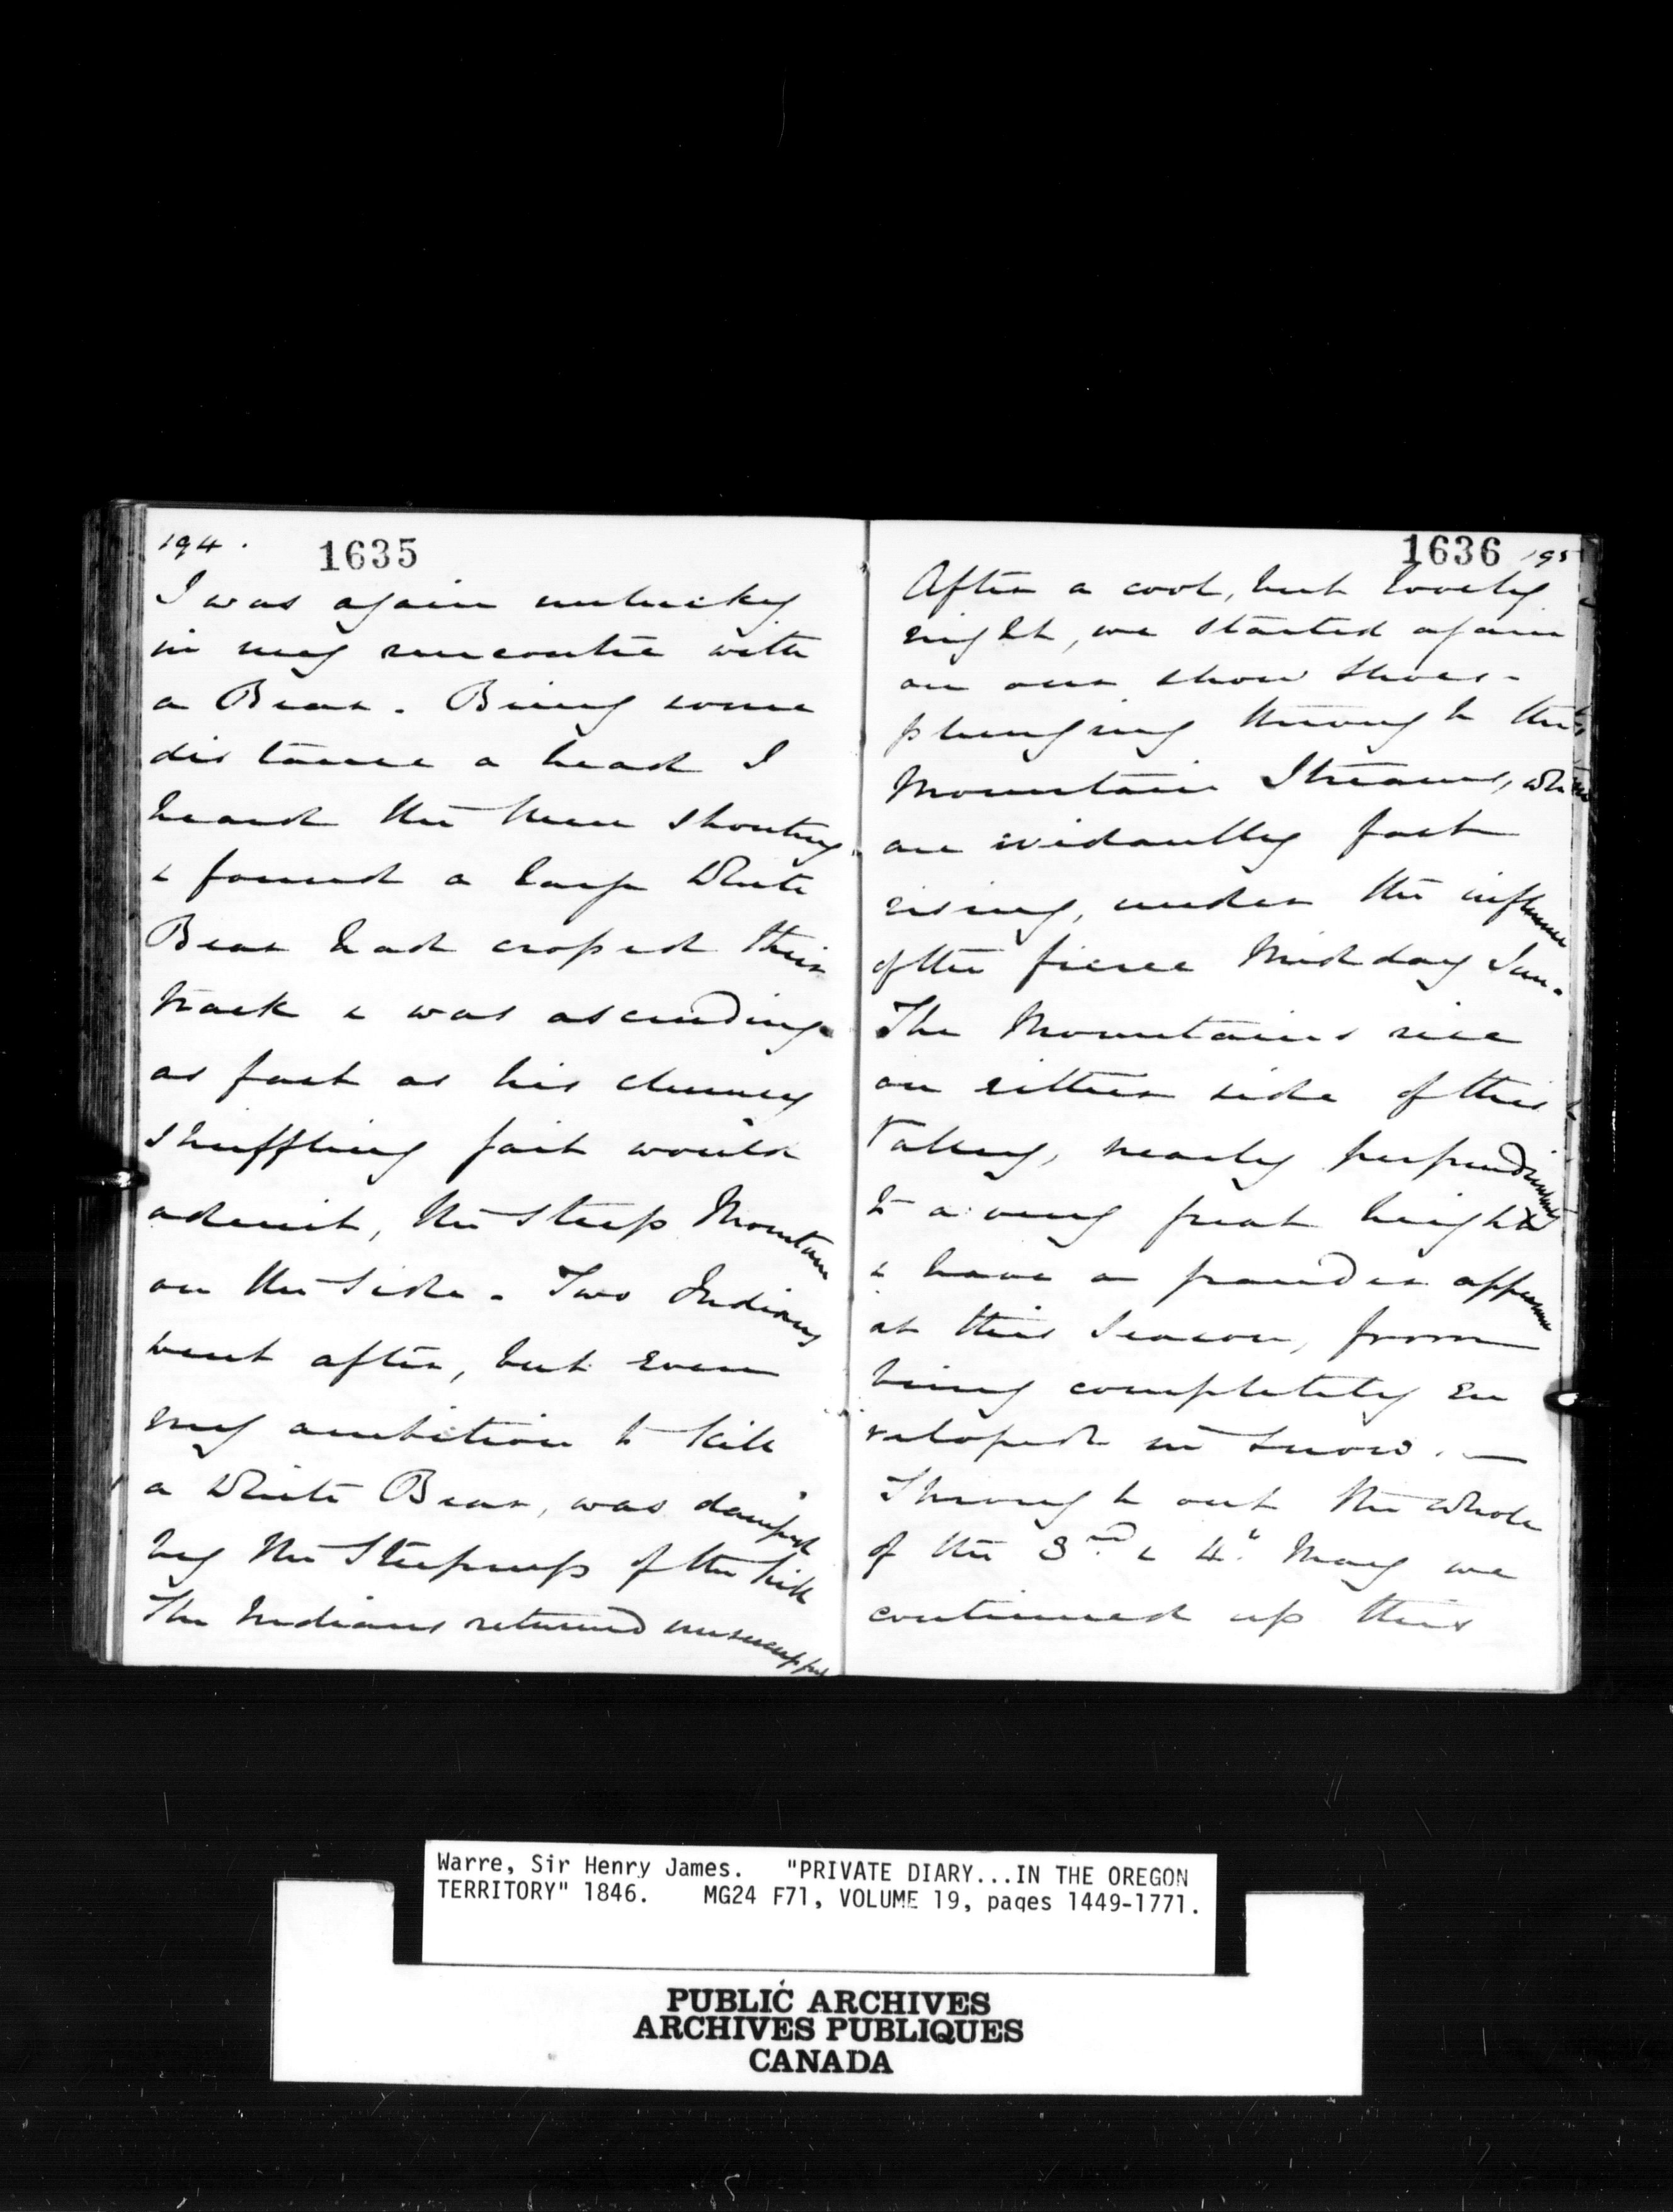 194.
1635
I was again unlucky
in my rencontre with
a Bear. Being some
distance a head I
heard the Men shouting
& found a large White
Bear had crossed their
track & was ascending
as fast as his clumsy
shuffling gait would
admit, the steep Mountain
on the side. Two Indians
went after, but even
my ambition to kill
a White Bear, was damped
by the Steepness of the hill
The Indians returned unsuccessful
1636
195
After a cool, but lovely
night, we started again
on our snow shoes-
plunging through the
Mountain Streams, which
are evidantly fast
rising, under the influence
of the fierce Mid day Sun.
The Mountains rise
on either side of this
Valley, nearly perpendicularly
to a very great height
& have a grander appearance
at this Season, from
being completely en
veloped in snow. —
Through out the whole
of the 3rd & 4th May we
continued up this
Warre, Sir Henry James. "PRIVATE DIARY...IN THE OREGON
TERRITORY" 1846. MG24 F71, VOLUME 19, pages 1449-1771.
PUBLIC ARCHIVES
ARCHIVES PUBLIQUES
CANADA